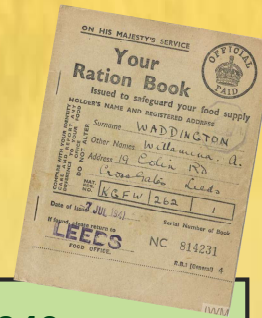 ON HIS MAJESTY'S SERVICE
OFFICIAL
PAID
Your
Ration Book
Issued to safeguard your food supply
HOLDER'S NAME AND REGISTERED ADDRESS
Surname WADDINGTON
Other Names A.
Address 19 Colin RD
CrossGates Leeds
DO NOT ALTER
NAT.
REG.
NO.
KGFW 262 1
Date of Issue 7 JUL 1941
Serial Number of Book
If found, please return to
LEEDS
FOOD OFFICE.
NC 814231
R.B.1 (General) 4
IWM